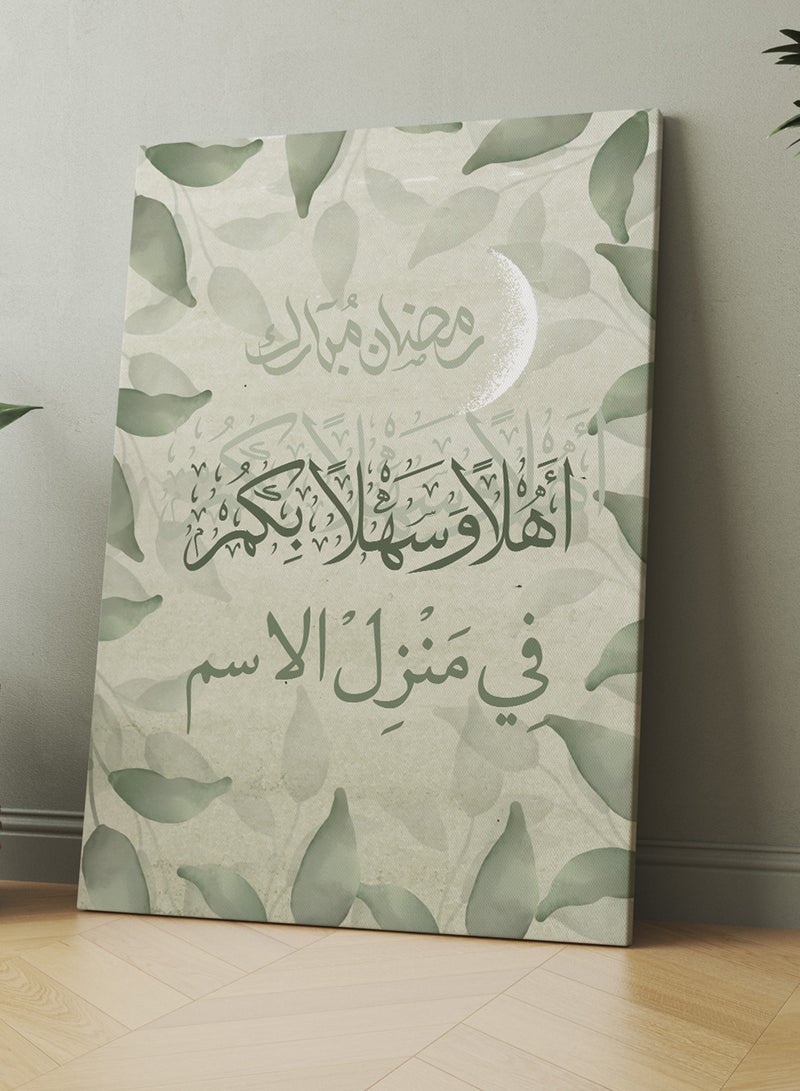 رمضان مُبارك
أَهْلاً وَسَهْلاً بِكُمْ
في مَنْزِلْ الاسم